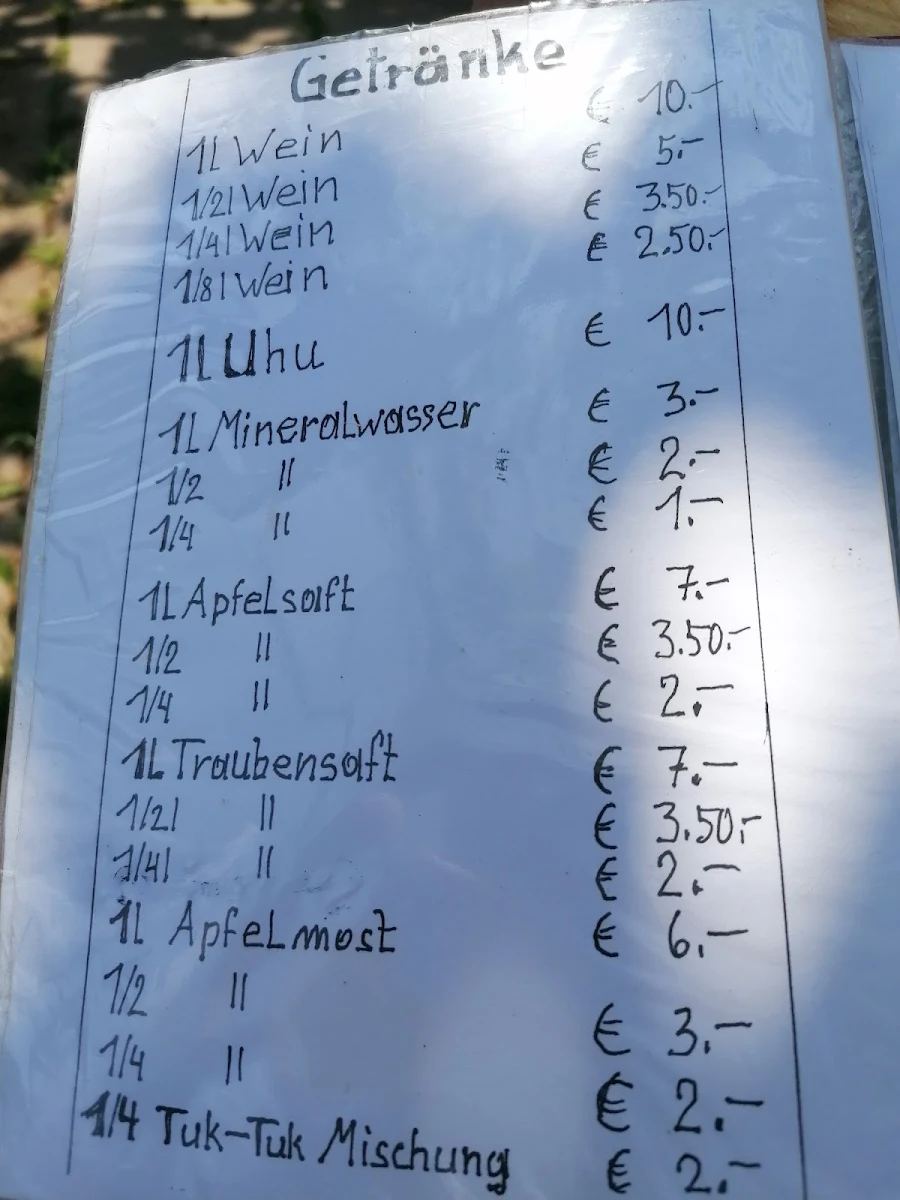 Getränke
1L Wein € 10.-
1/2l Wein € 5.-
1/4l Wein € 3.50.-
1/8l Wein € 2.50.-
1L Uhu € 10.-
1L Mineralwasser € 3.-
1/2 " € 2.-
1/4 " € 1.-
1L Apfelsaft € 7.-
1/2 " € 3.50.-
1/4 " € 2.-
1L Traubensaft € 7.-
1/2l " € 3.50.-
1/4l " € 2.-
1L Apfelmost € 6.-
1/2 " € 3.-
1/4 " € 2.-
1/4 Tuk-Tuk Mischung € 2.-